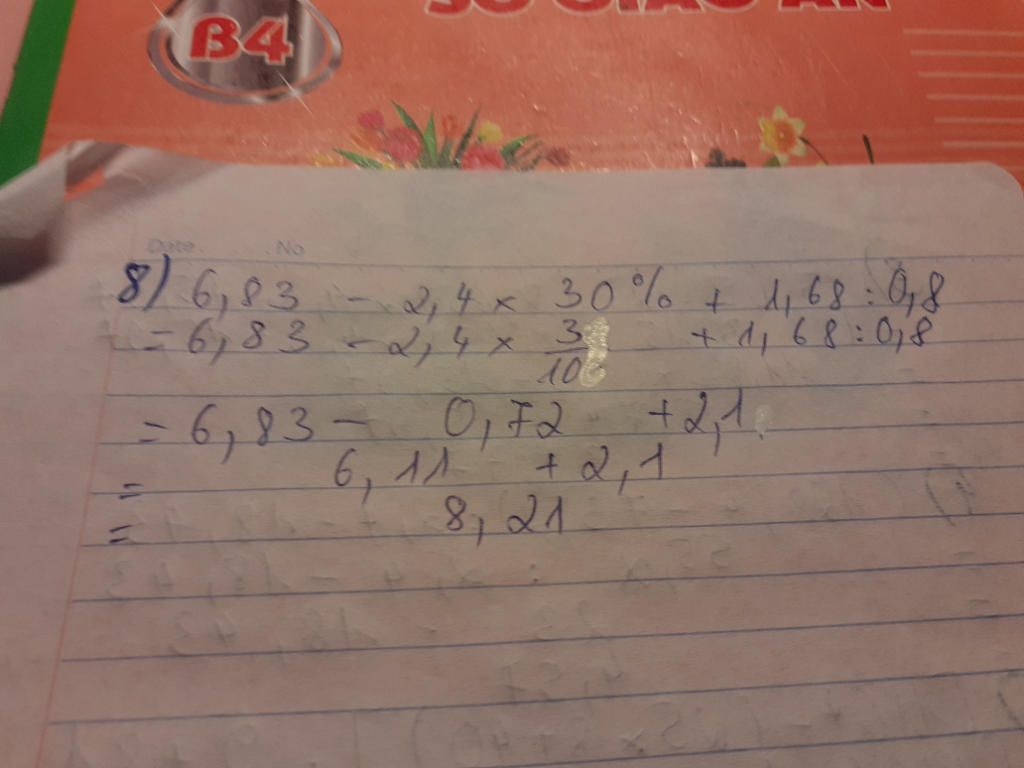 B4
SỔ GIÁO ÁN
Date. No
8) 6,83 - 2,4 x 30% + 1,68 : 0,8
= 6,83 - 2,4 x 3/10 + 1,68 : 0,8
= 6,83 - 0,72 + 2,1
= 6,11 + 2,1
= 8,21